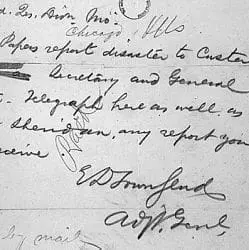 d. Qs. Divn Mo.
Chicago, Ills
Papers report disaster to Custer
Secretary and General
Telegraph here as well as
Sheridan, any report you
receive
E D Townsend
Adjt. Genl.
by mail